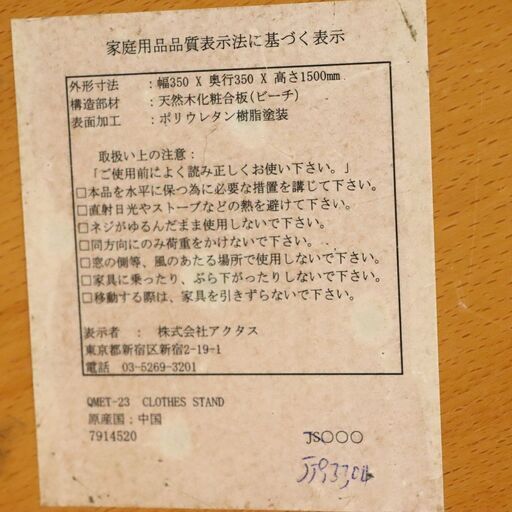 家庭用品品質表示法に基づく表示
外形寸法 : 幅350 X 奥行350 X 高さ1500mm
構造部材 : 天然木化粧合板(ビーチ)
表面加工 : ポリウレタン樹脂塗装
取扱い上の注意:
「ご使用前によく読み正しくお使い下さい。」
□本品を水平に保つ為に必要な措置を講じて下さい。
□直射日光やストーブなどの熱を避けて下さい。
□ネジがゆるんだまま使用しないで下さい。
□同方向にのみ荷重をかけないで下さい。
□窓の側等、風のあたる場所で使用しないで下さい。
□家具に乗ったり、ぶら下がったりしないで下さい。
□移動する際は、家具を引きずらないで下さい。
表示者 : 株式会社アクタス
東京都新宿区新宿2-19-1
電話 03-5269-3201
QMET-23 CLOTHES STAND
原産国:中国
7914520
JS○○○